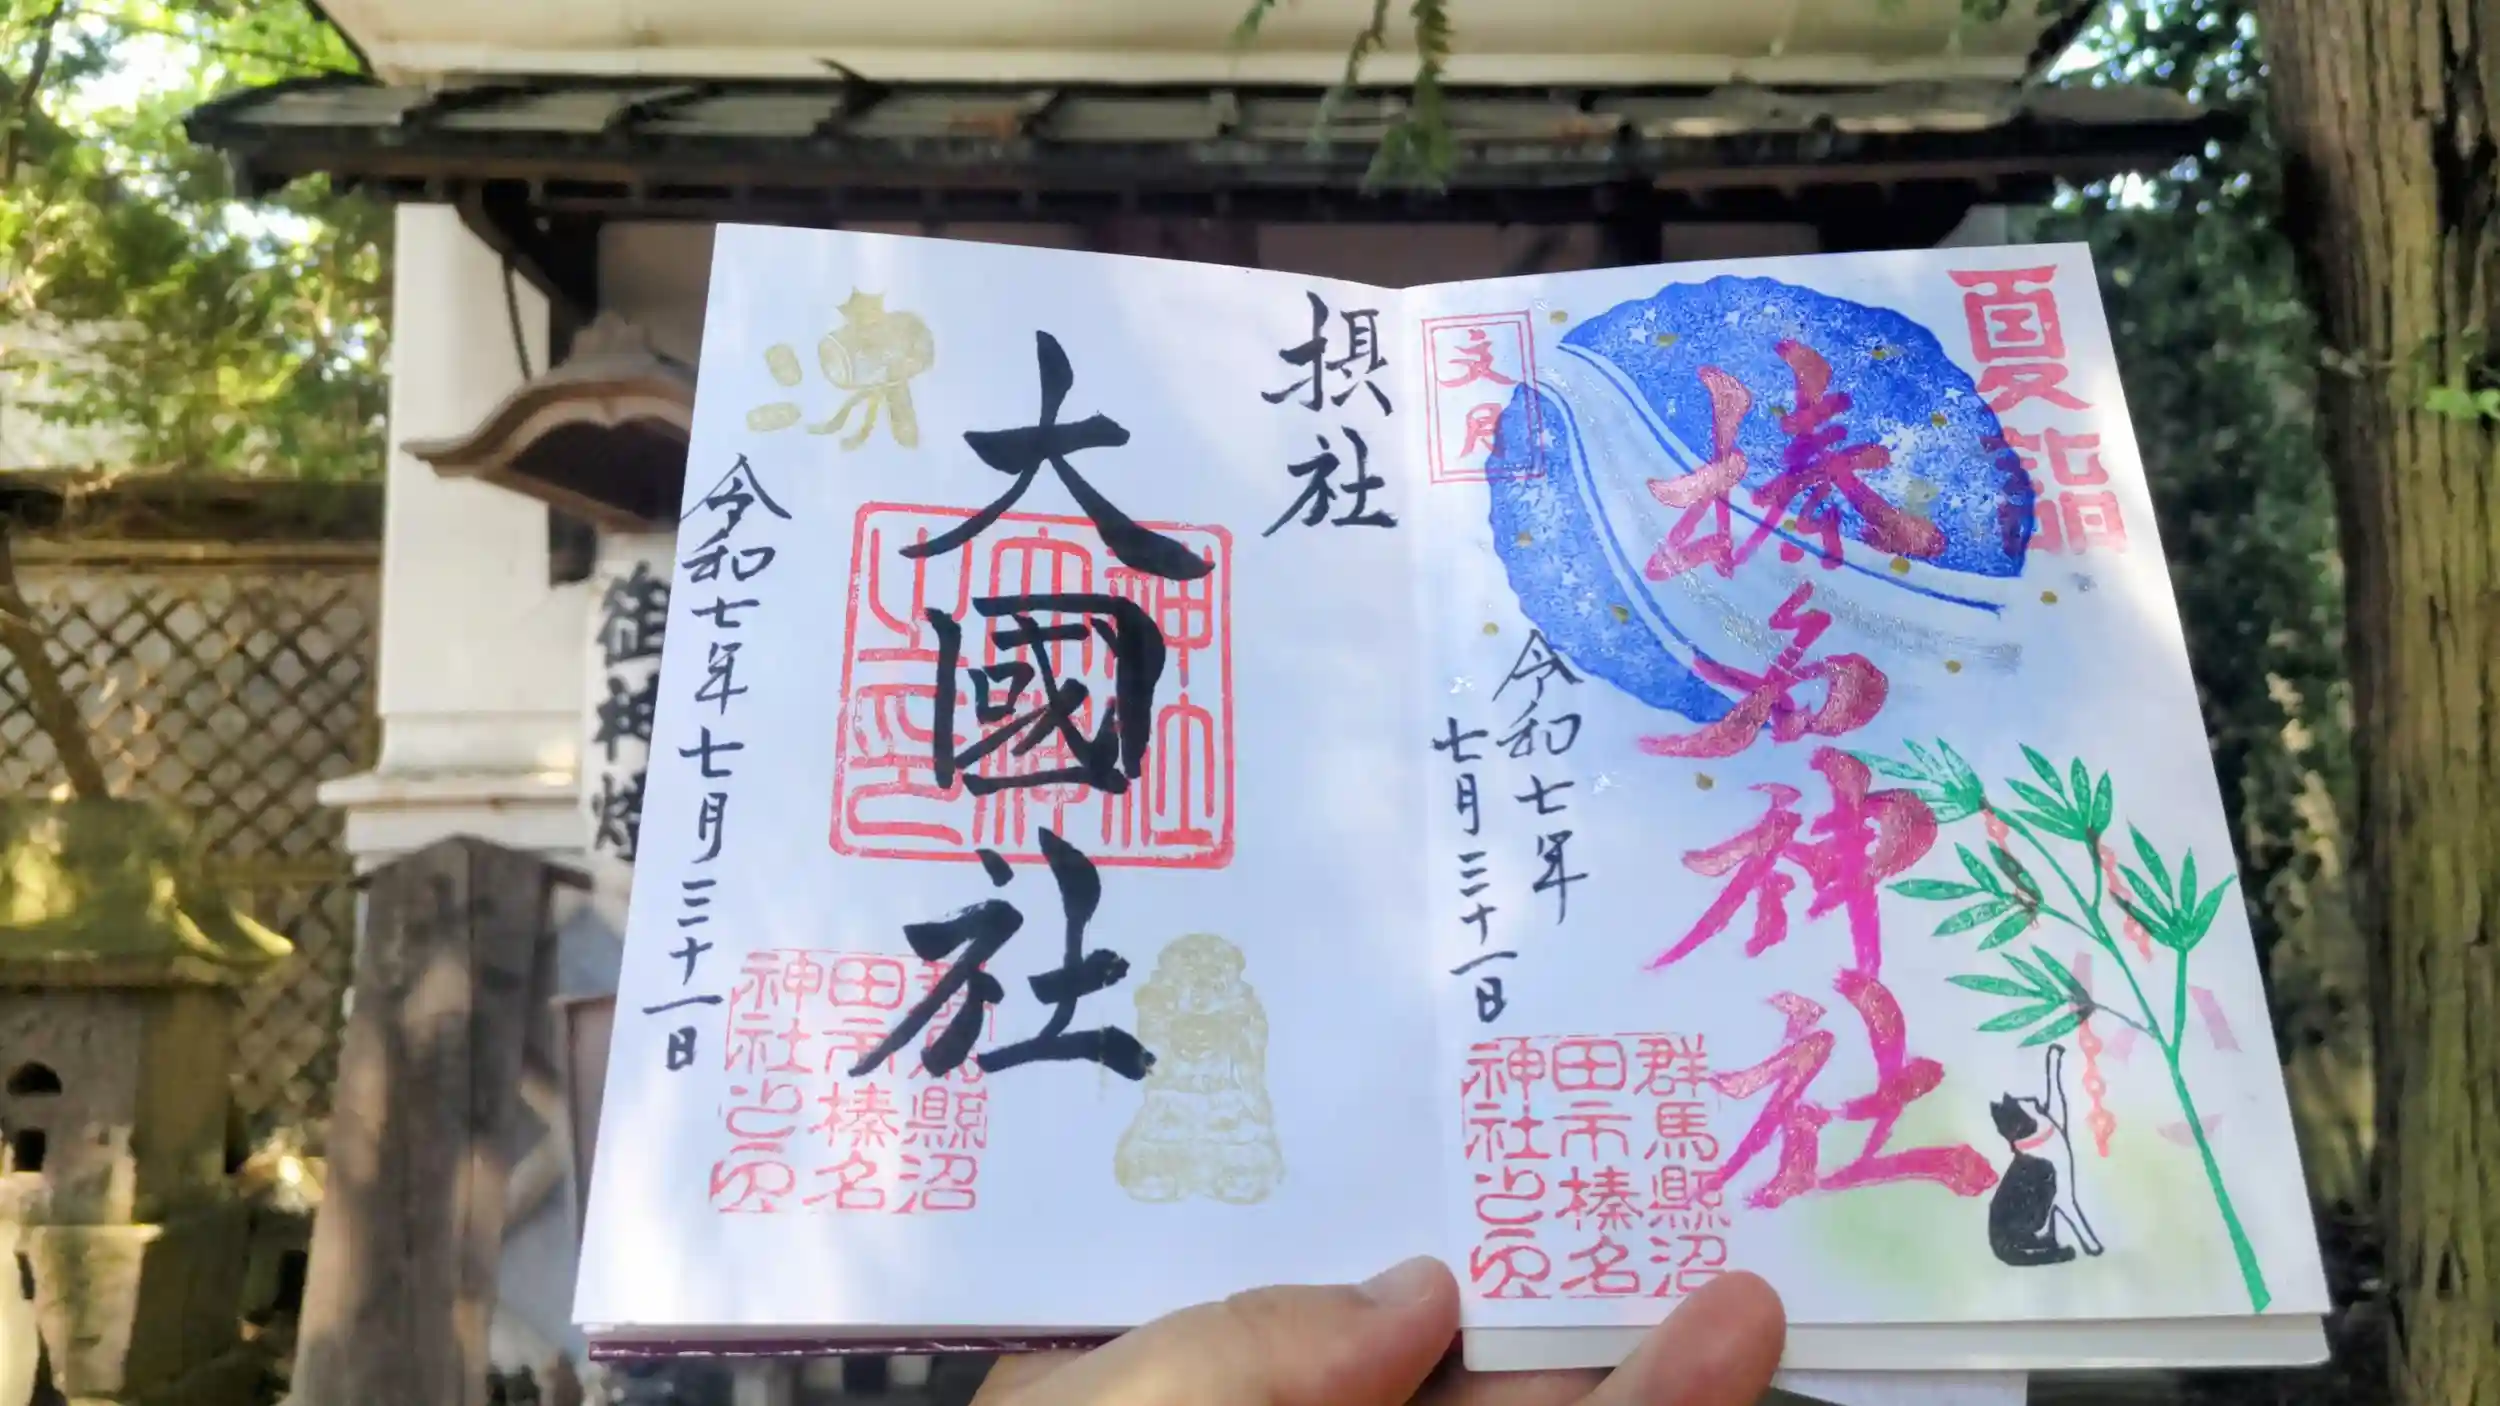 夏詣
榛名神社
文月
令和七年
七月三十一日
群馬縣沼
田市榛名
神社之印
摂社
大國社
神社
大國
之印
令和七年七月三十一日
群馬縣沼
田市榛名
神社之印
御神燈